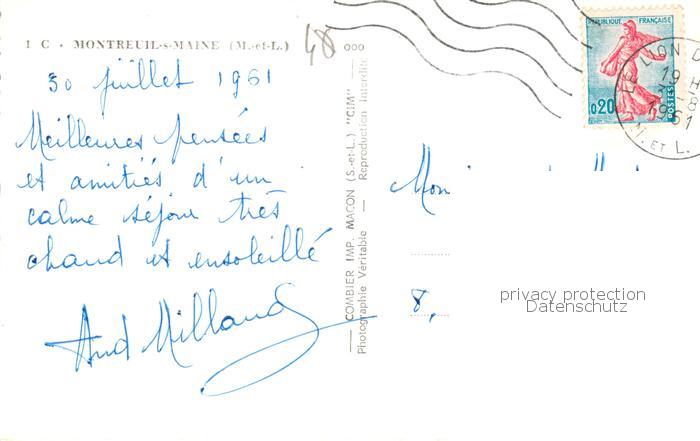 1 C. MONTREUIL-s-MAINE (M.-et-L.)
48
30 juillet 1961
Meilleures pensées
et amitiés d'un
calme séjour très
chaud et ensoleillé
COMBIER IMP. MACON (S.-et-L.) "CIM"
Photographie Véritable — Reproduction Interdite
REPUBLIQUE FRANÇAISE
0,20
POSTES
LE LION D
19 H
1961
M. ET L.
8,
privacy protection
Datenschutz